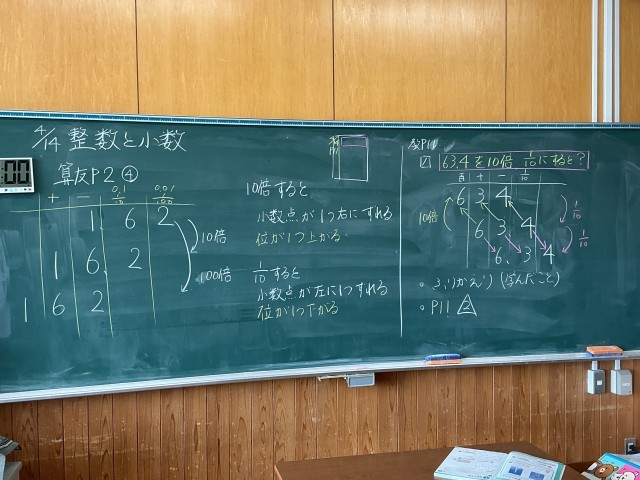 4/14 整数と小数
:00
算友P2④
十 一 0.1 1/10 0.01 1/100
1. 6 2
1 6. 2
1 6 2
10倍
100倍
10倍すると
小数点が1つ右にずれる
位が1つ上がる
1/10すると
小数点が左に1つずれる
位が1つ下がる
教P11
2 63.4を10倍 1/10にすると?
百 十 一 1/10
6 3 4
6 3. 4
6. 3 4
10倍
1/10
1/10
・ふりかえり(学んだこと)
・P11 2